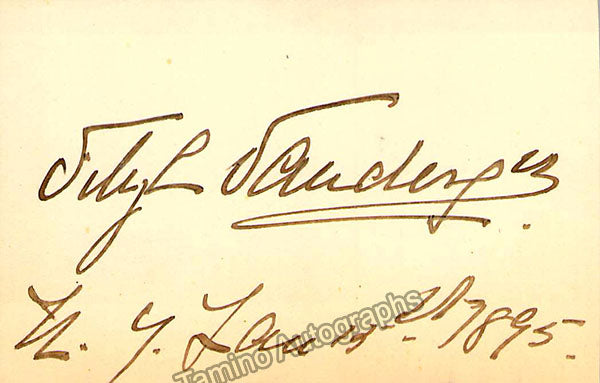 Sibyl Sanderson.
N. Y. Jan 1895.
Tamino Autographs